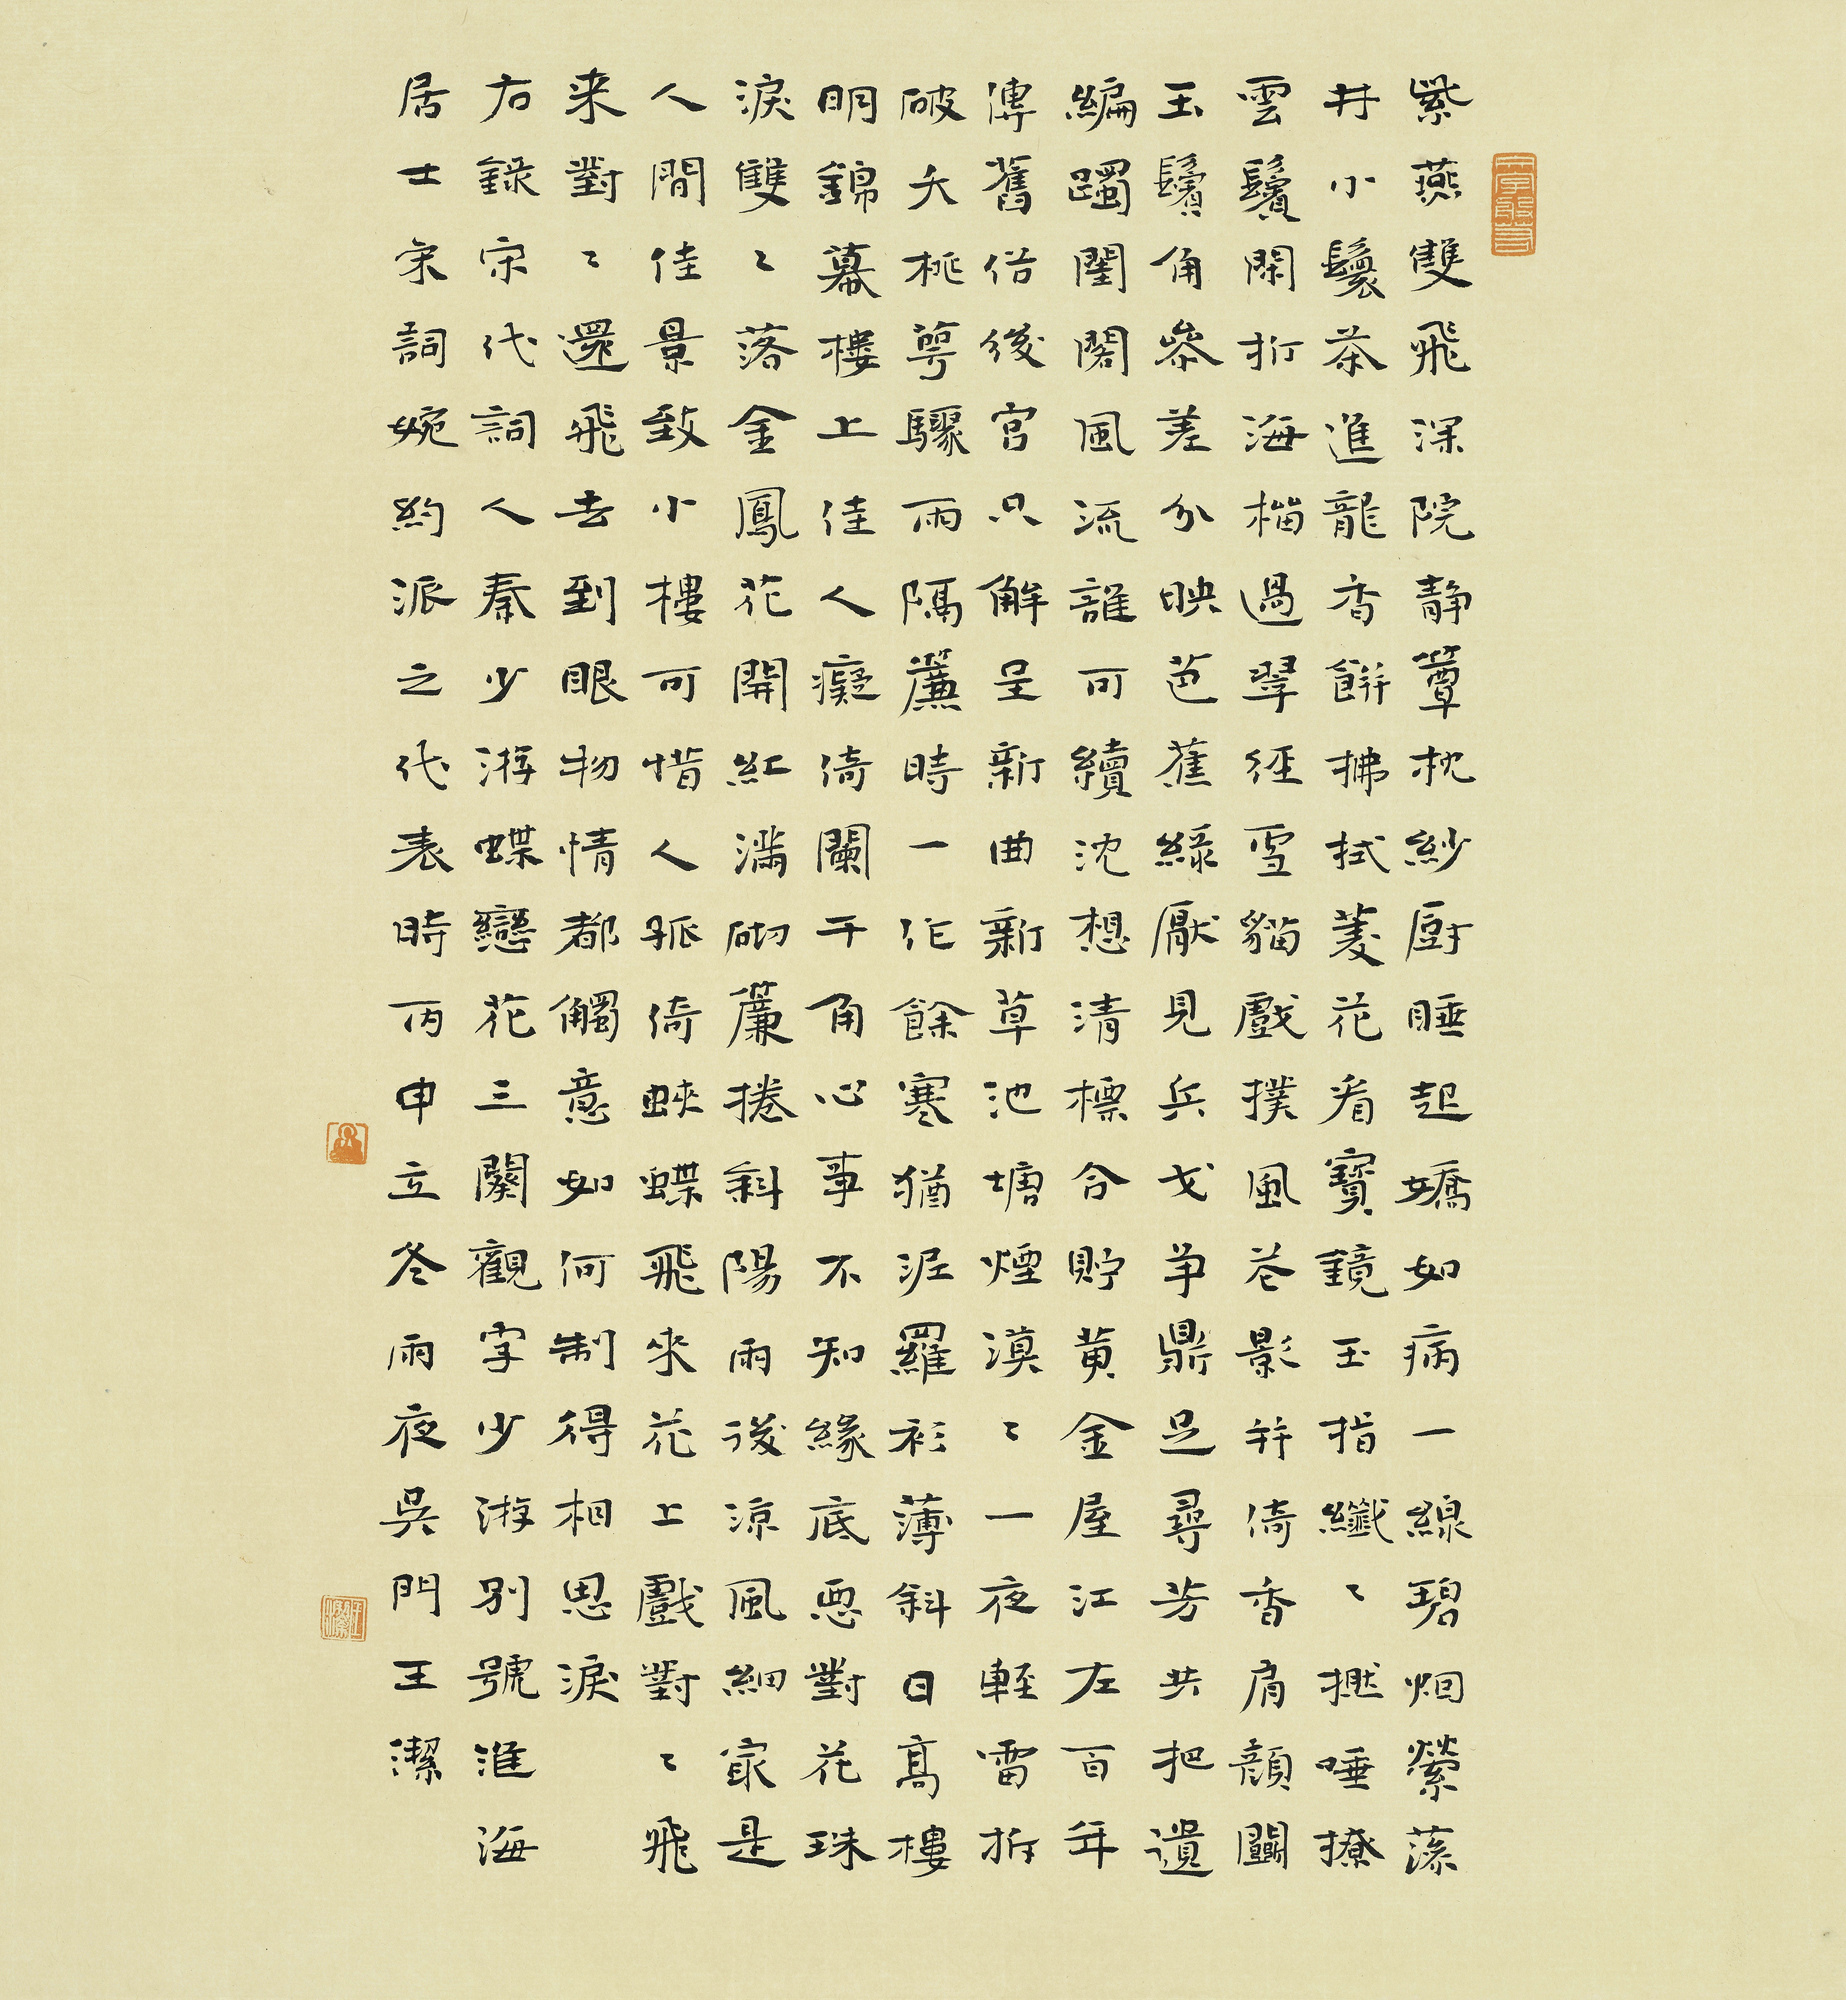 紫燕雙飛深院靜簟枕紗廚睡起嬌如病一線碧烟縈藻
井小鬟茶進龍香餅拂拭菱花看寶鏡玉指纖〻撚唾撩
雲鬢閑折海榴過翠徑雪貓戲撲風花影并倚香肩顏鬭
玉鬢角參差分映芭蕉綠厭見兵戈爭鼎足尋芳共把遺
編躅閨閣風流誰可續沈想清標合貯黃金屋江左百年
傳舊俗後宮只解呈新曲新草池塘煙漠〻一夜輕雷拆
破夭桃萼驟雨隔簾時一作餘寒猶泥羅衫薄斜日高樓
明錦幕樓上佳人癡倚闌干角心事不知緣底惡對花珠
淚雙〻落金鳳花開紅滿砌簾捲斜陽雨後涼風細最是
人間佳景致小樓可惜人孤倚蛺蝶飛來花上戲對〻飛
来對〻還飛去到眼物情都觸意如何制得相思淚
右錄宋代詞人秦少游蝶戀花三闋觀字少游別號淮海
居士宋詞婉約派之代表時丙申立冬雨夜吳門王潔